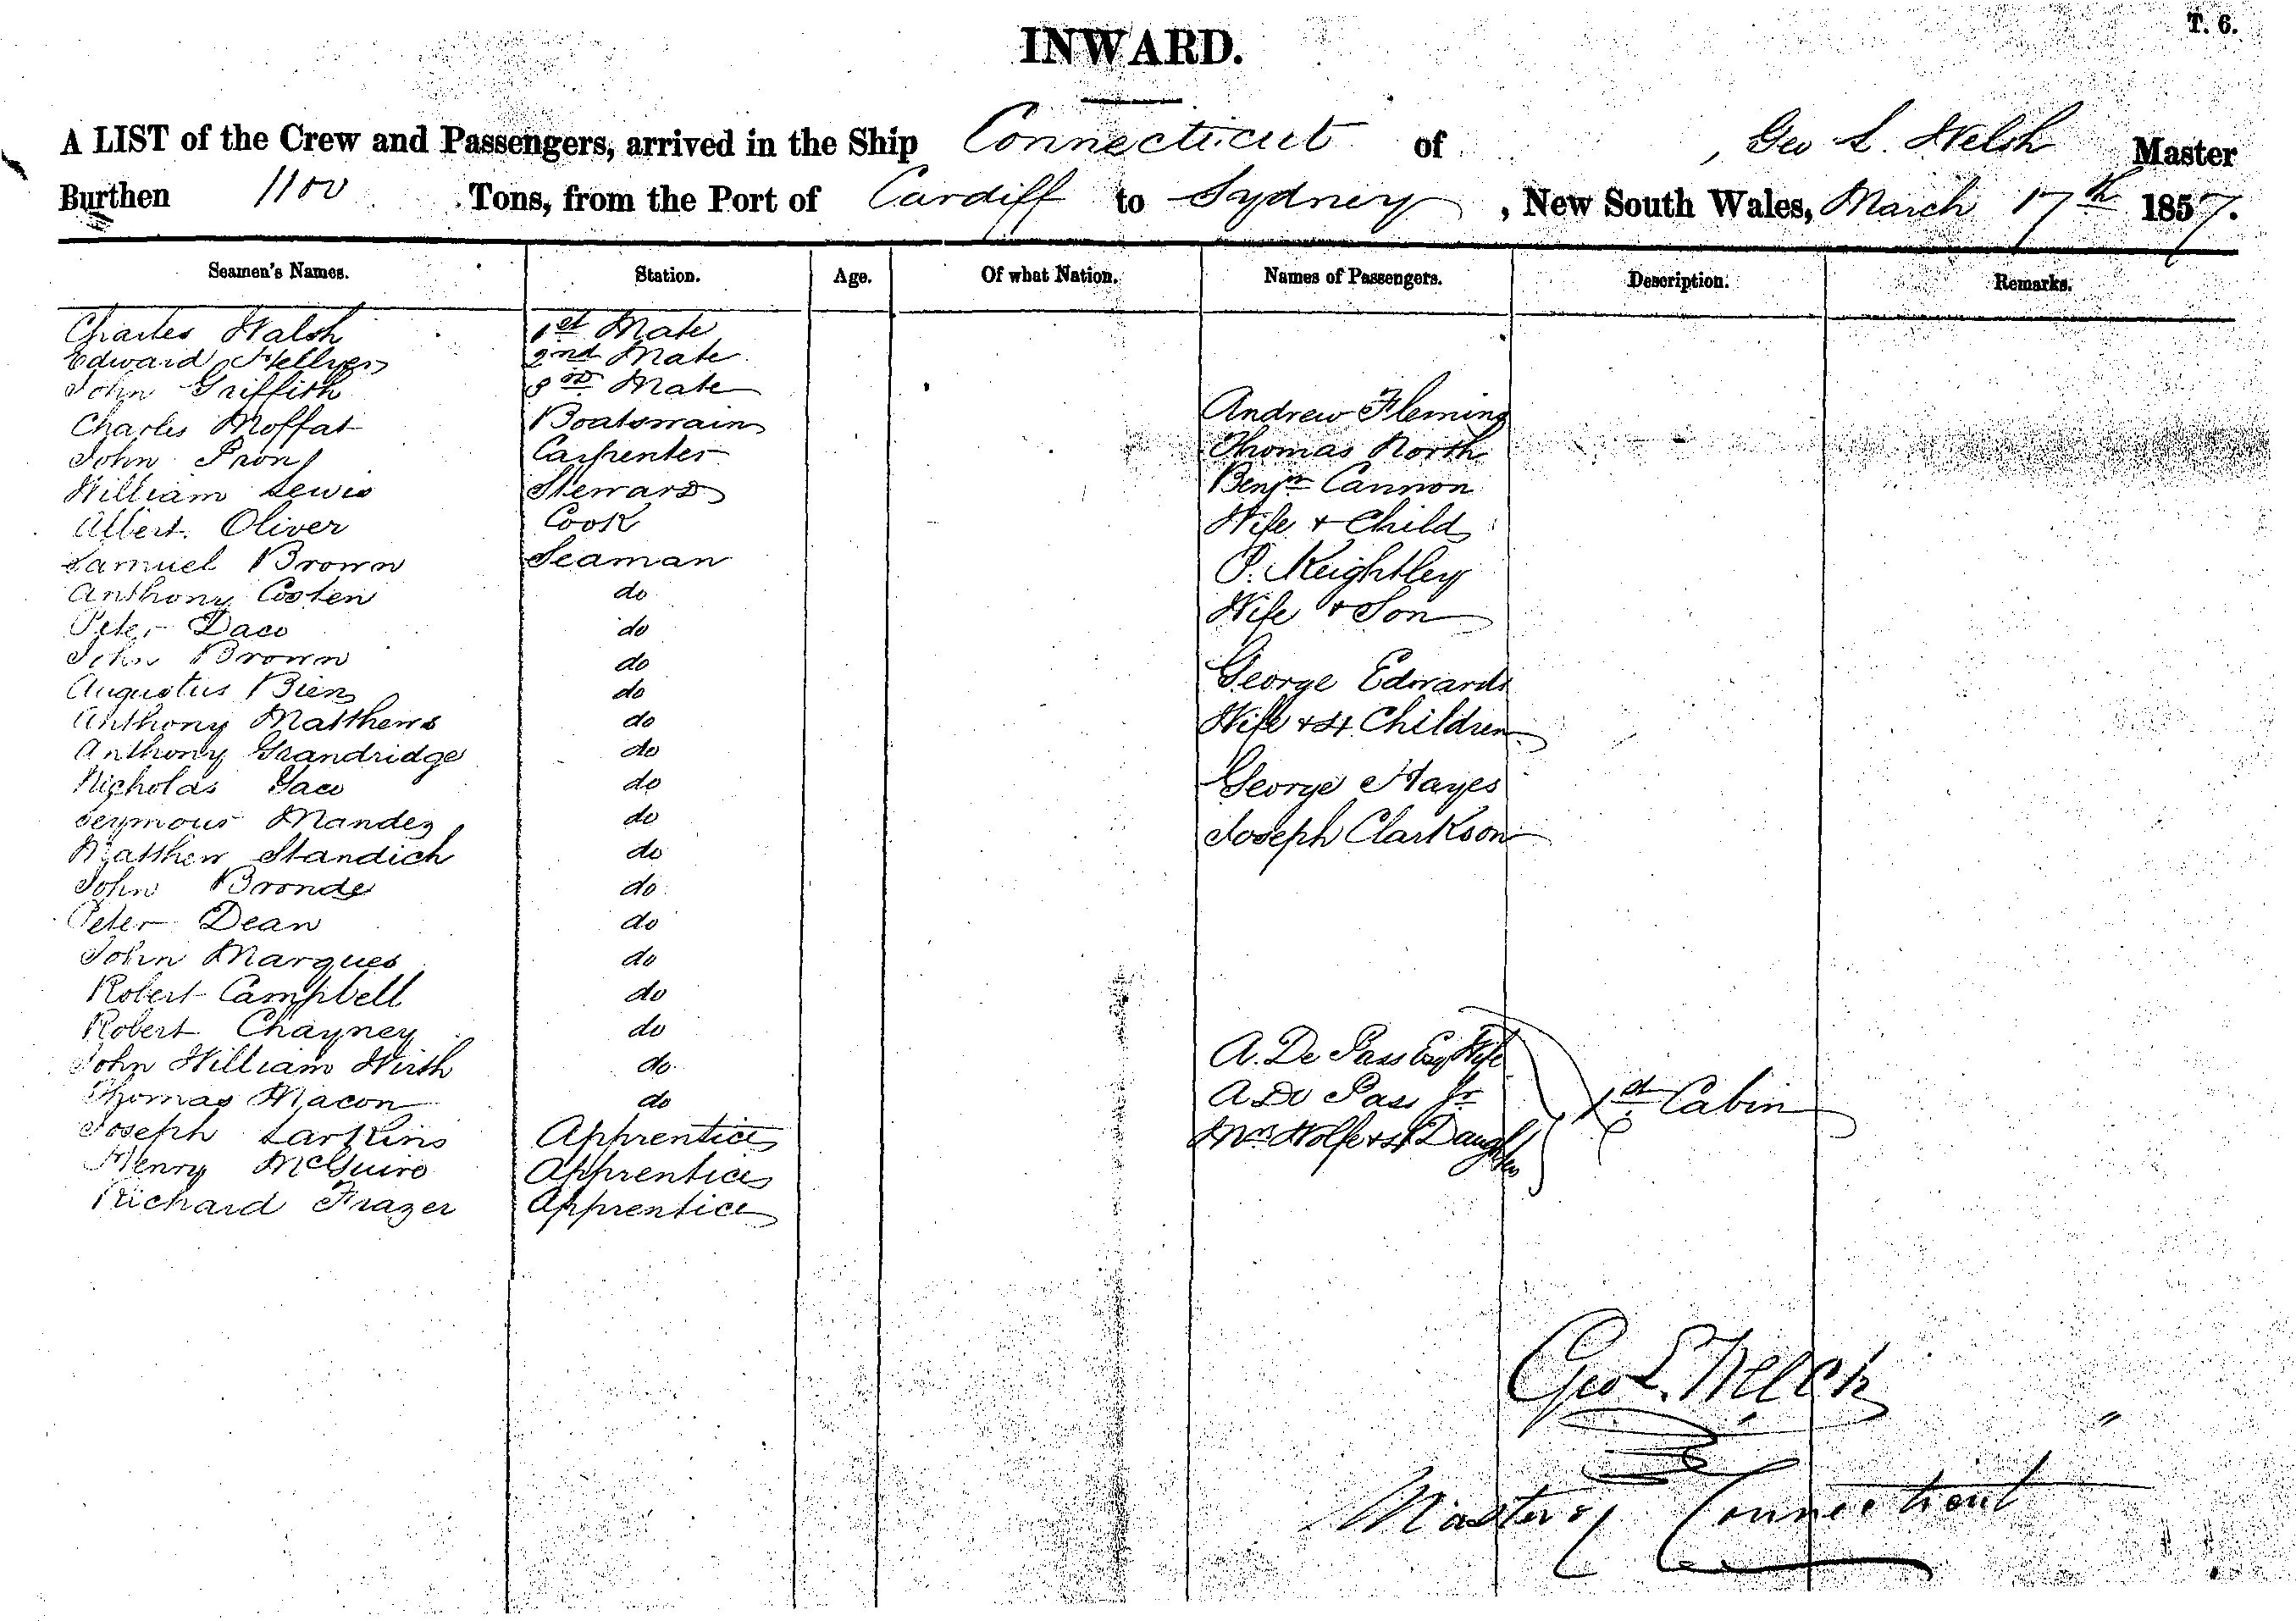 T. 6.
INWARD.
A LIST of the Crew and Passengers, arrived in the Ship Connecticut of , Geo L. Welsh Master
Burthen 1100 Tons, from the Port of Cardiff to Sydney, New South Wales, March 17th 1857.
Seamen's Names. Station. Age. Of what Nation. Names of Passengers. Description. Remarks.
Charles Walsh 1st Mate
Edward Hellyer 2nd Mate
John Griffith 3rd Mate
Charles Moffat Boatswain Andrew Fleming
John Pron Carpenter Thomas North
William Lewis Steward Benjn Cannon
Albert Oliver Cook Wife & Child
Samuel Brown Seaman P. Keightley
Anthony Costen do Wife & Son
Peter Daco do
John Brown do George Edwards
Augustus Bien do
Anthony Matthews do Wife & 4 Children
Anthony Grandridge do
Nicholas Gaco do George Hayes
Seymour Mandez do Joseph Clarkson
Matthew Standich do
John Bronde do
Peter Dean do
John Marques do
Robert Campbell do
Robert Chayney do A. De Pass Esq Wife
John William Wirth do
Thomas Macon do A De Pass Jr 1st Cabin
Joseph Larkins Apprentice Mrs Wolfe & 4 Daughters
Henry McGuire Apprentice
Richard Frazer Apprentice
Geo L. Welch
Master of Connecticut